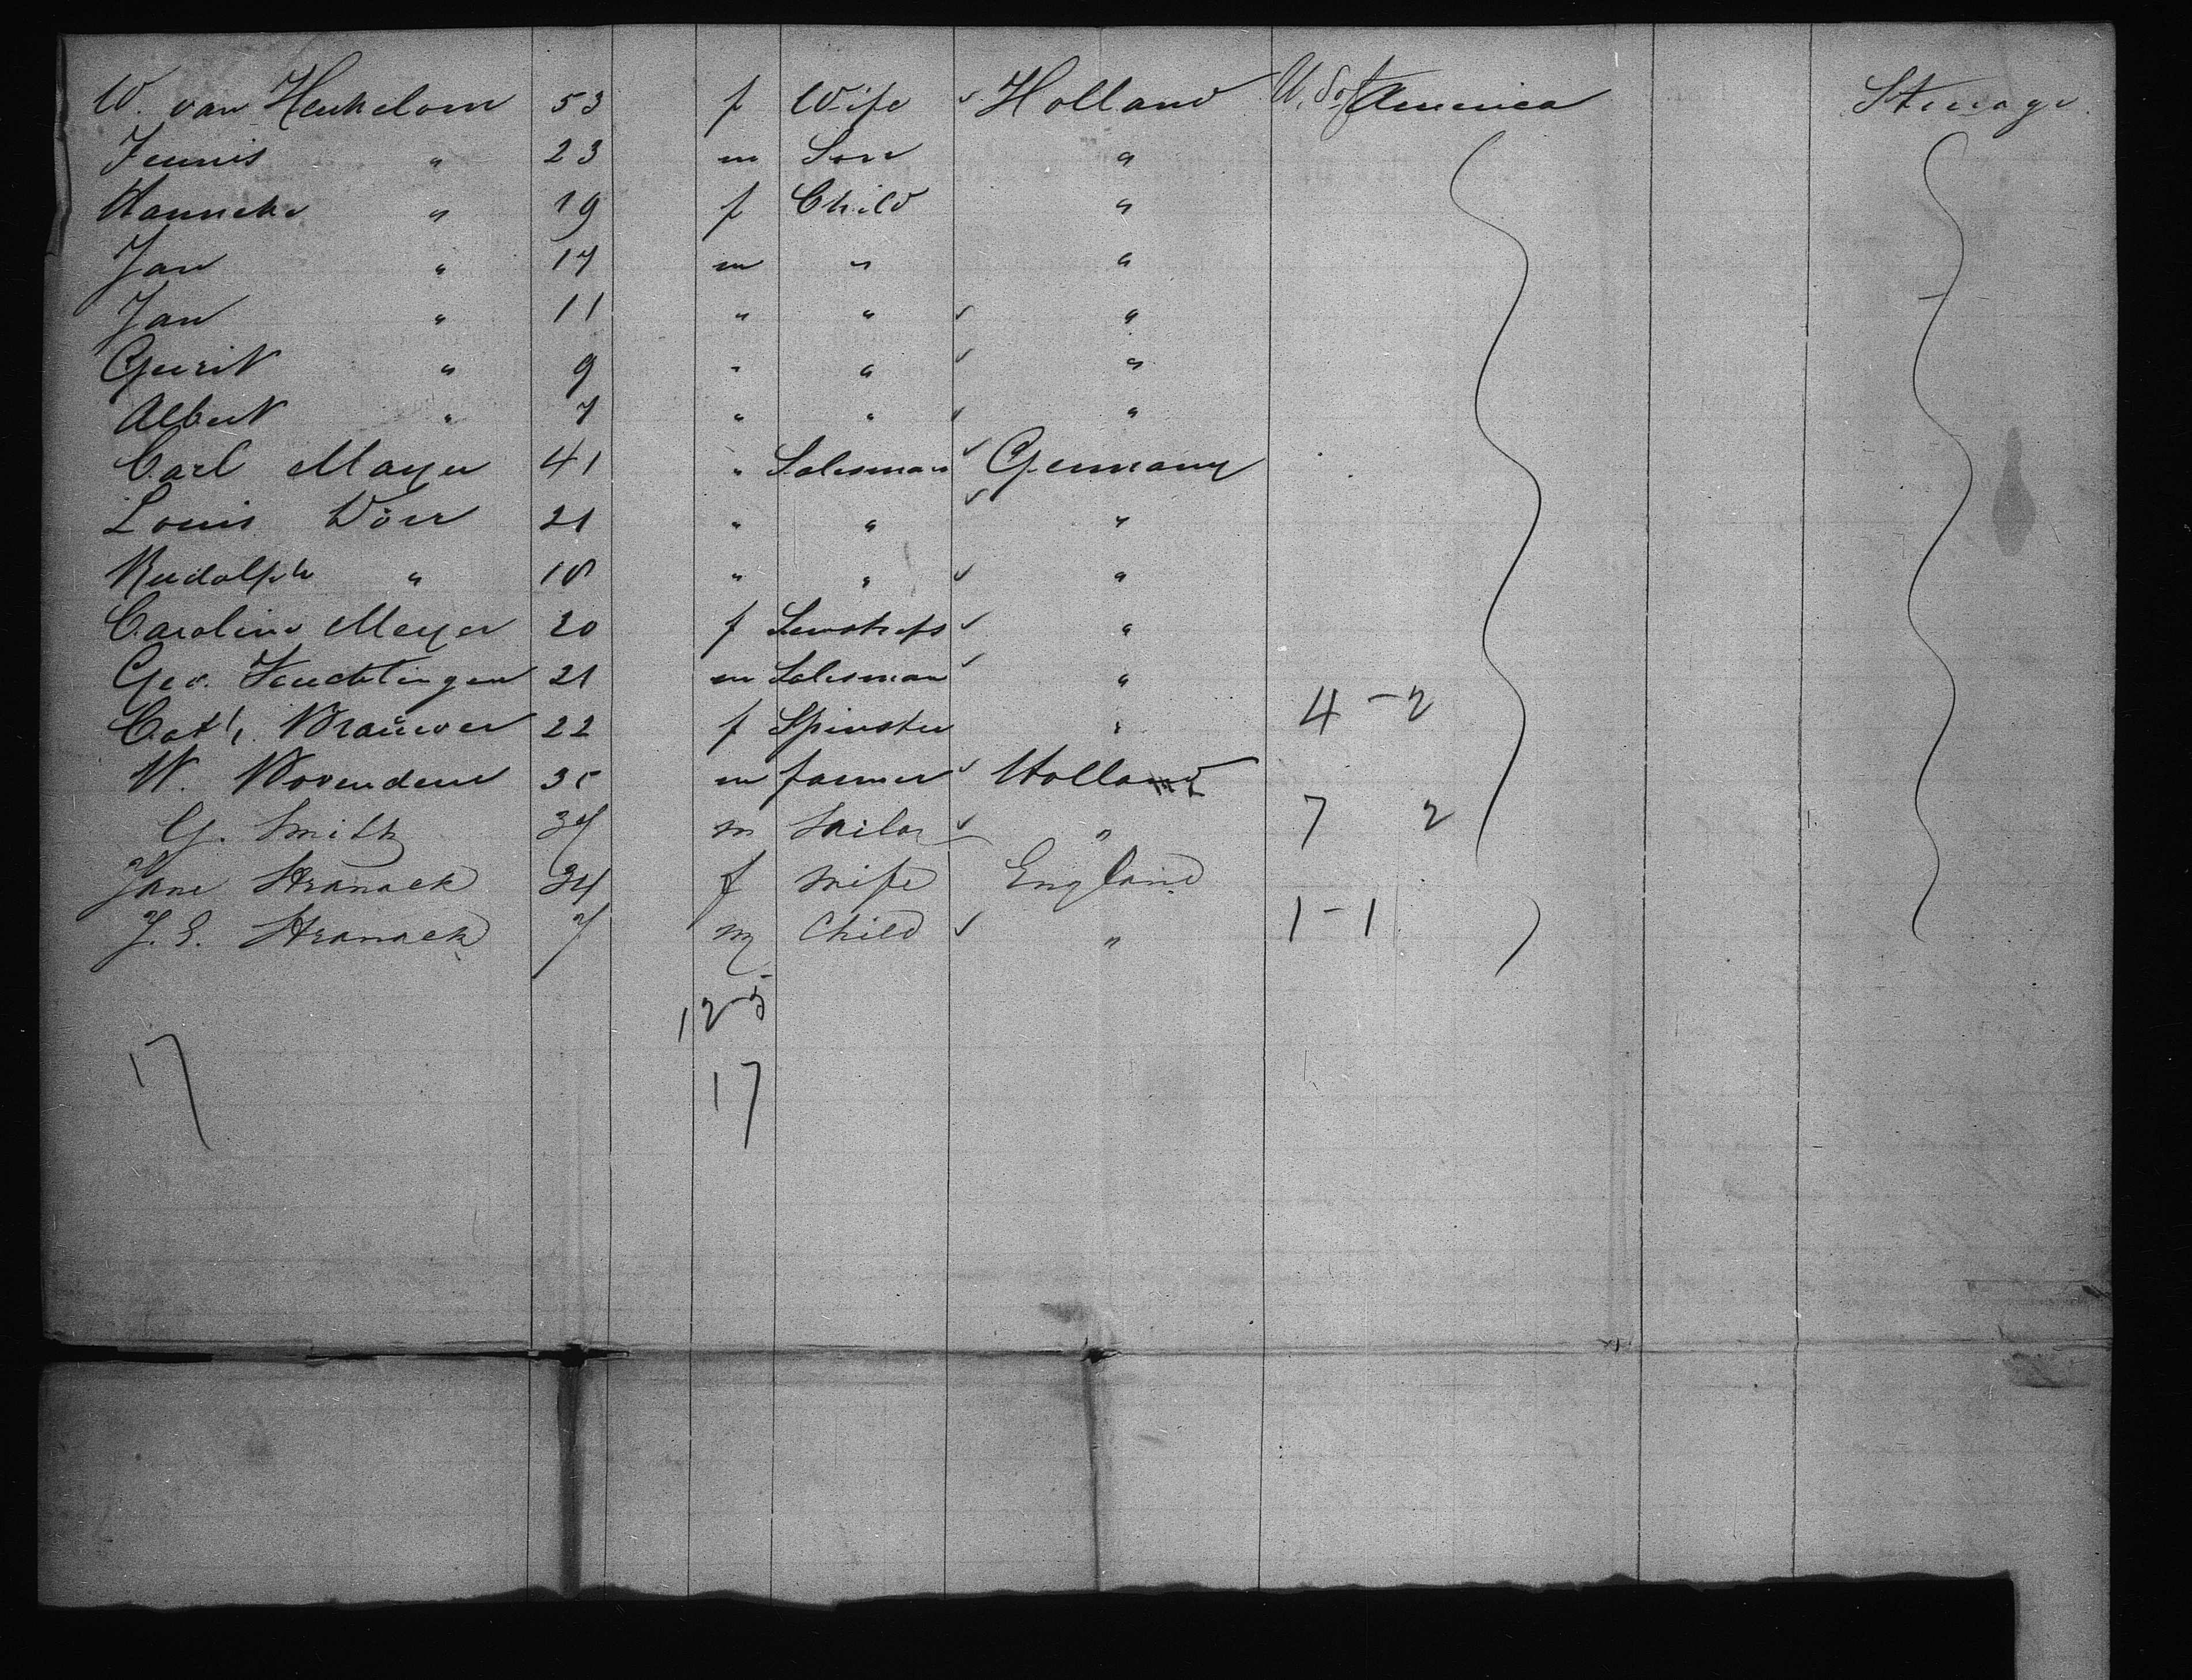 W. van Heukelom 53 f Wife ✓ Holland U. S. of America Steerage
Teunis " 23 m Son "
Hanneke " 19 f Child "
Jan " 17 m " "
Jan " 11 " " ✓ "
Gerrit " 9 " " ✓ "
Albert " 7 " " ✓ "
Carl Mayer 41 " Salesman ✓ Germany
Louis Dörr 21 " " ✓ "
Rudolph " 18 " " ✓ "
Caroline Meyer 20 f ✓ "
Geo. Feuchtinger 21 m Salesman ✓ "
Cath. Braŭwer 22 f Spinster " 4 - 2
W. Bovendeur 35 m farmer ✓ Holland
G. Smith 37 m Sailor ✓ " 7 2
Jane Hranack 34 f Wife England
J. E. Hranack 7 m Child ✓ " 1 - 1
12-5
17 17